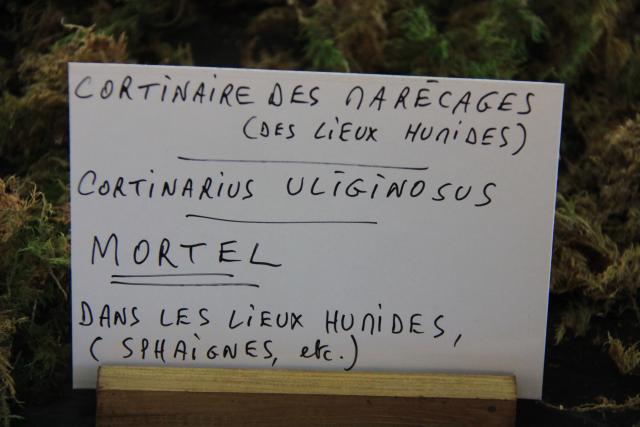 CORTINAIRE DES MARÉCAGES
(DES LIEUX HUMIDES)
CORTINARIUS ULIGINOSUS
MORTEL
DANS LES LIEUX HUMIDES,
( SPHAIGNES, etc.)